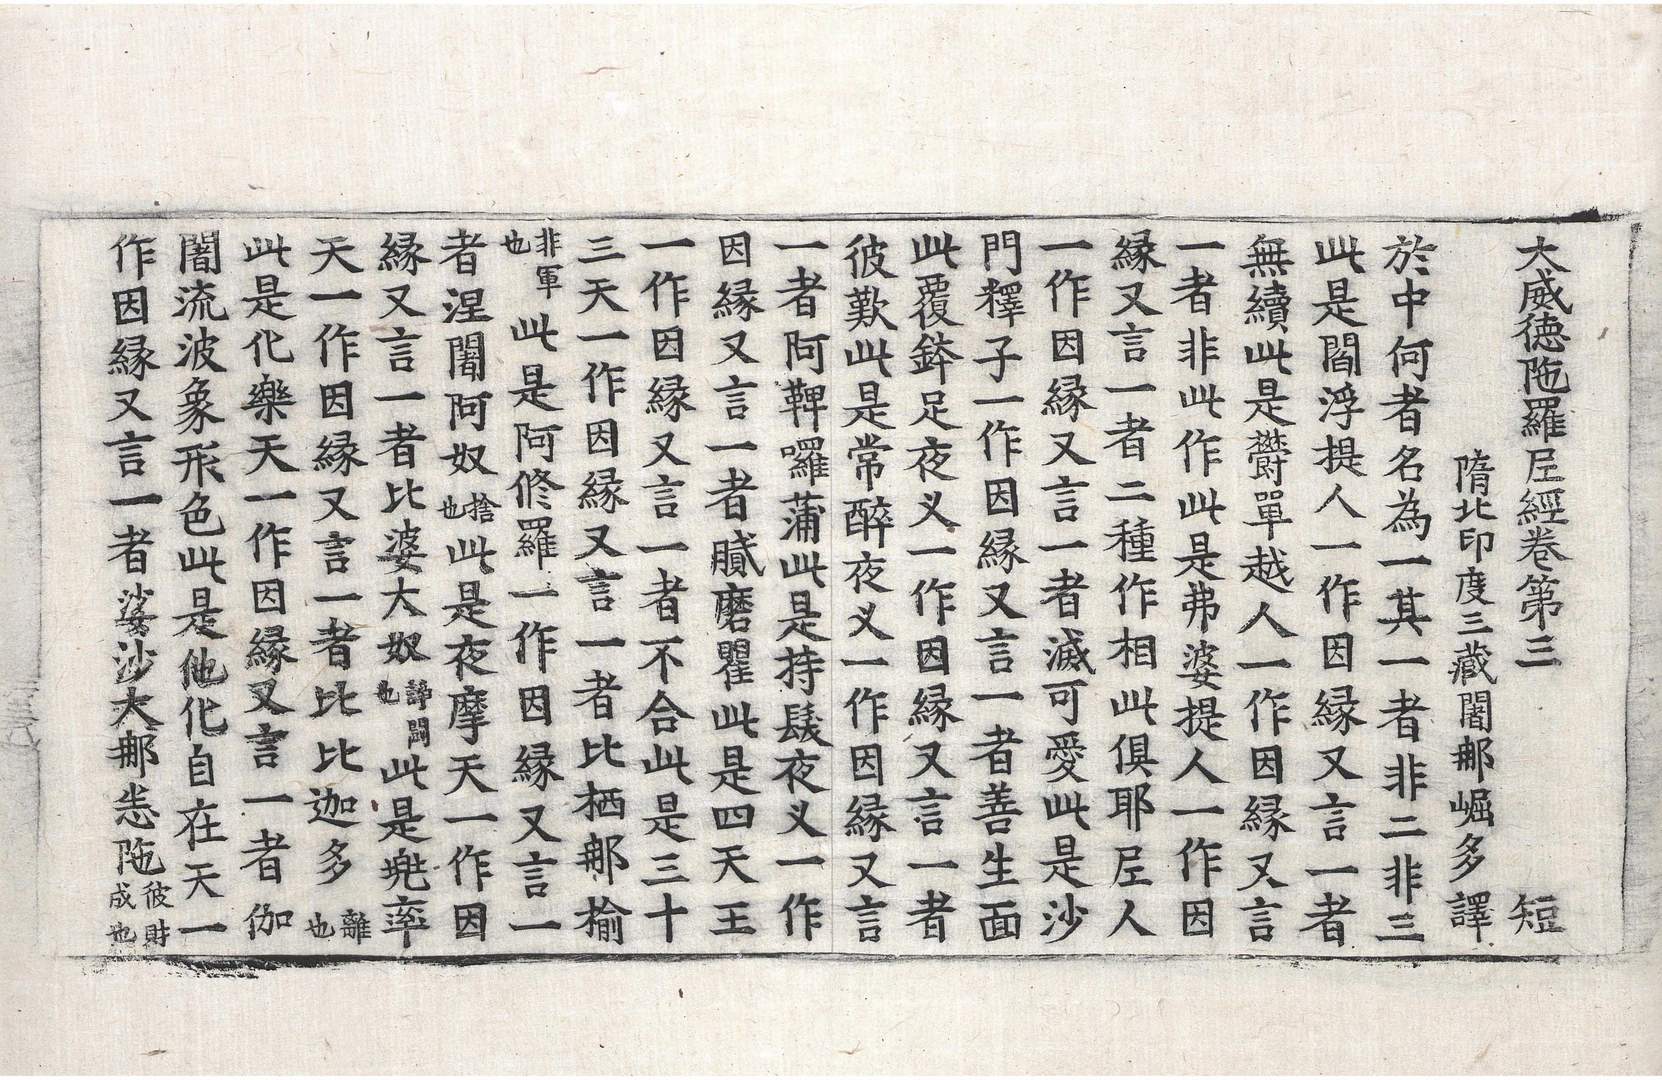 大威德陁羅尼經卷第三　短
隋北印度三藏闍那崛多譯
於中何者名為一其一者非二非三
此是閻浮提人一作因緣又言一者
無續此是欝單越人一作因緣又言
一者非此作此是弗婆提人一作因
緣又言一者二種作相此俱耶尼人
一作因緣又言一者滅可愛此是沙
門釋子一作因緣又言一者善生面
此覆鉢足夜义一作因緣又言一者
彼歎此是常醉夜义一作因緣又言
一者阿鞞囉蒲此是持鬘夜义一作
因緣又言一者膩磨瞿此是四天王
一作因緣又言一者不合此是三十
三天一作因緣又言一者比栖那揄
非軍也此是阿修羅一作因緣又言一
者涅闍阿奴捨也此是夜摩天一作因
緣又言一者比婆大奴諍鬪也此是兠率
天一作因緣又言一者比比迦多離也
此是化樂天一作因緣又言一者伽
闍流波象形色此是他化自在天一
作因緣又言一者娑沙大那恙陁彼財成也